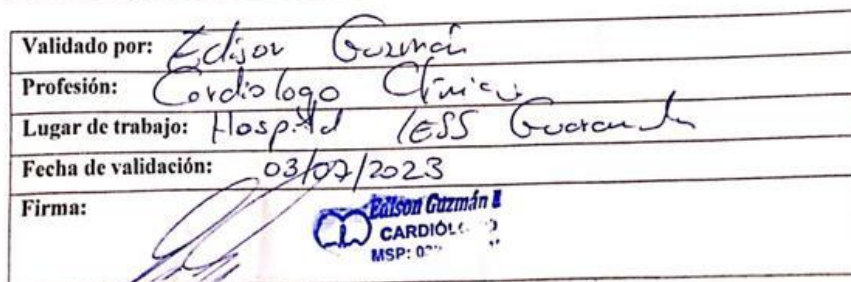 Validado por: Edison Guzmán
Profesión: Cardiologo Clínico
Lugar de trabajo: Hospital IESS Guaranda
Fecha de validación: 03/07/2023
Firma:
Edison Guzmán
CARDIÓLO
MSP: 0